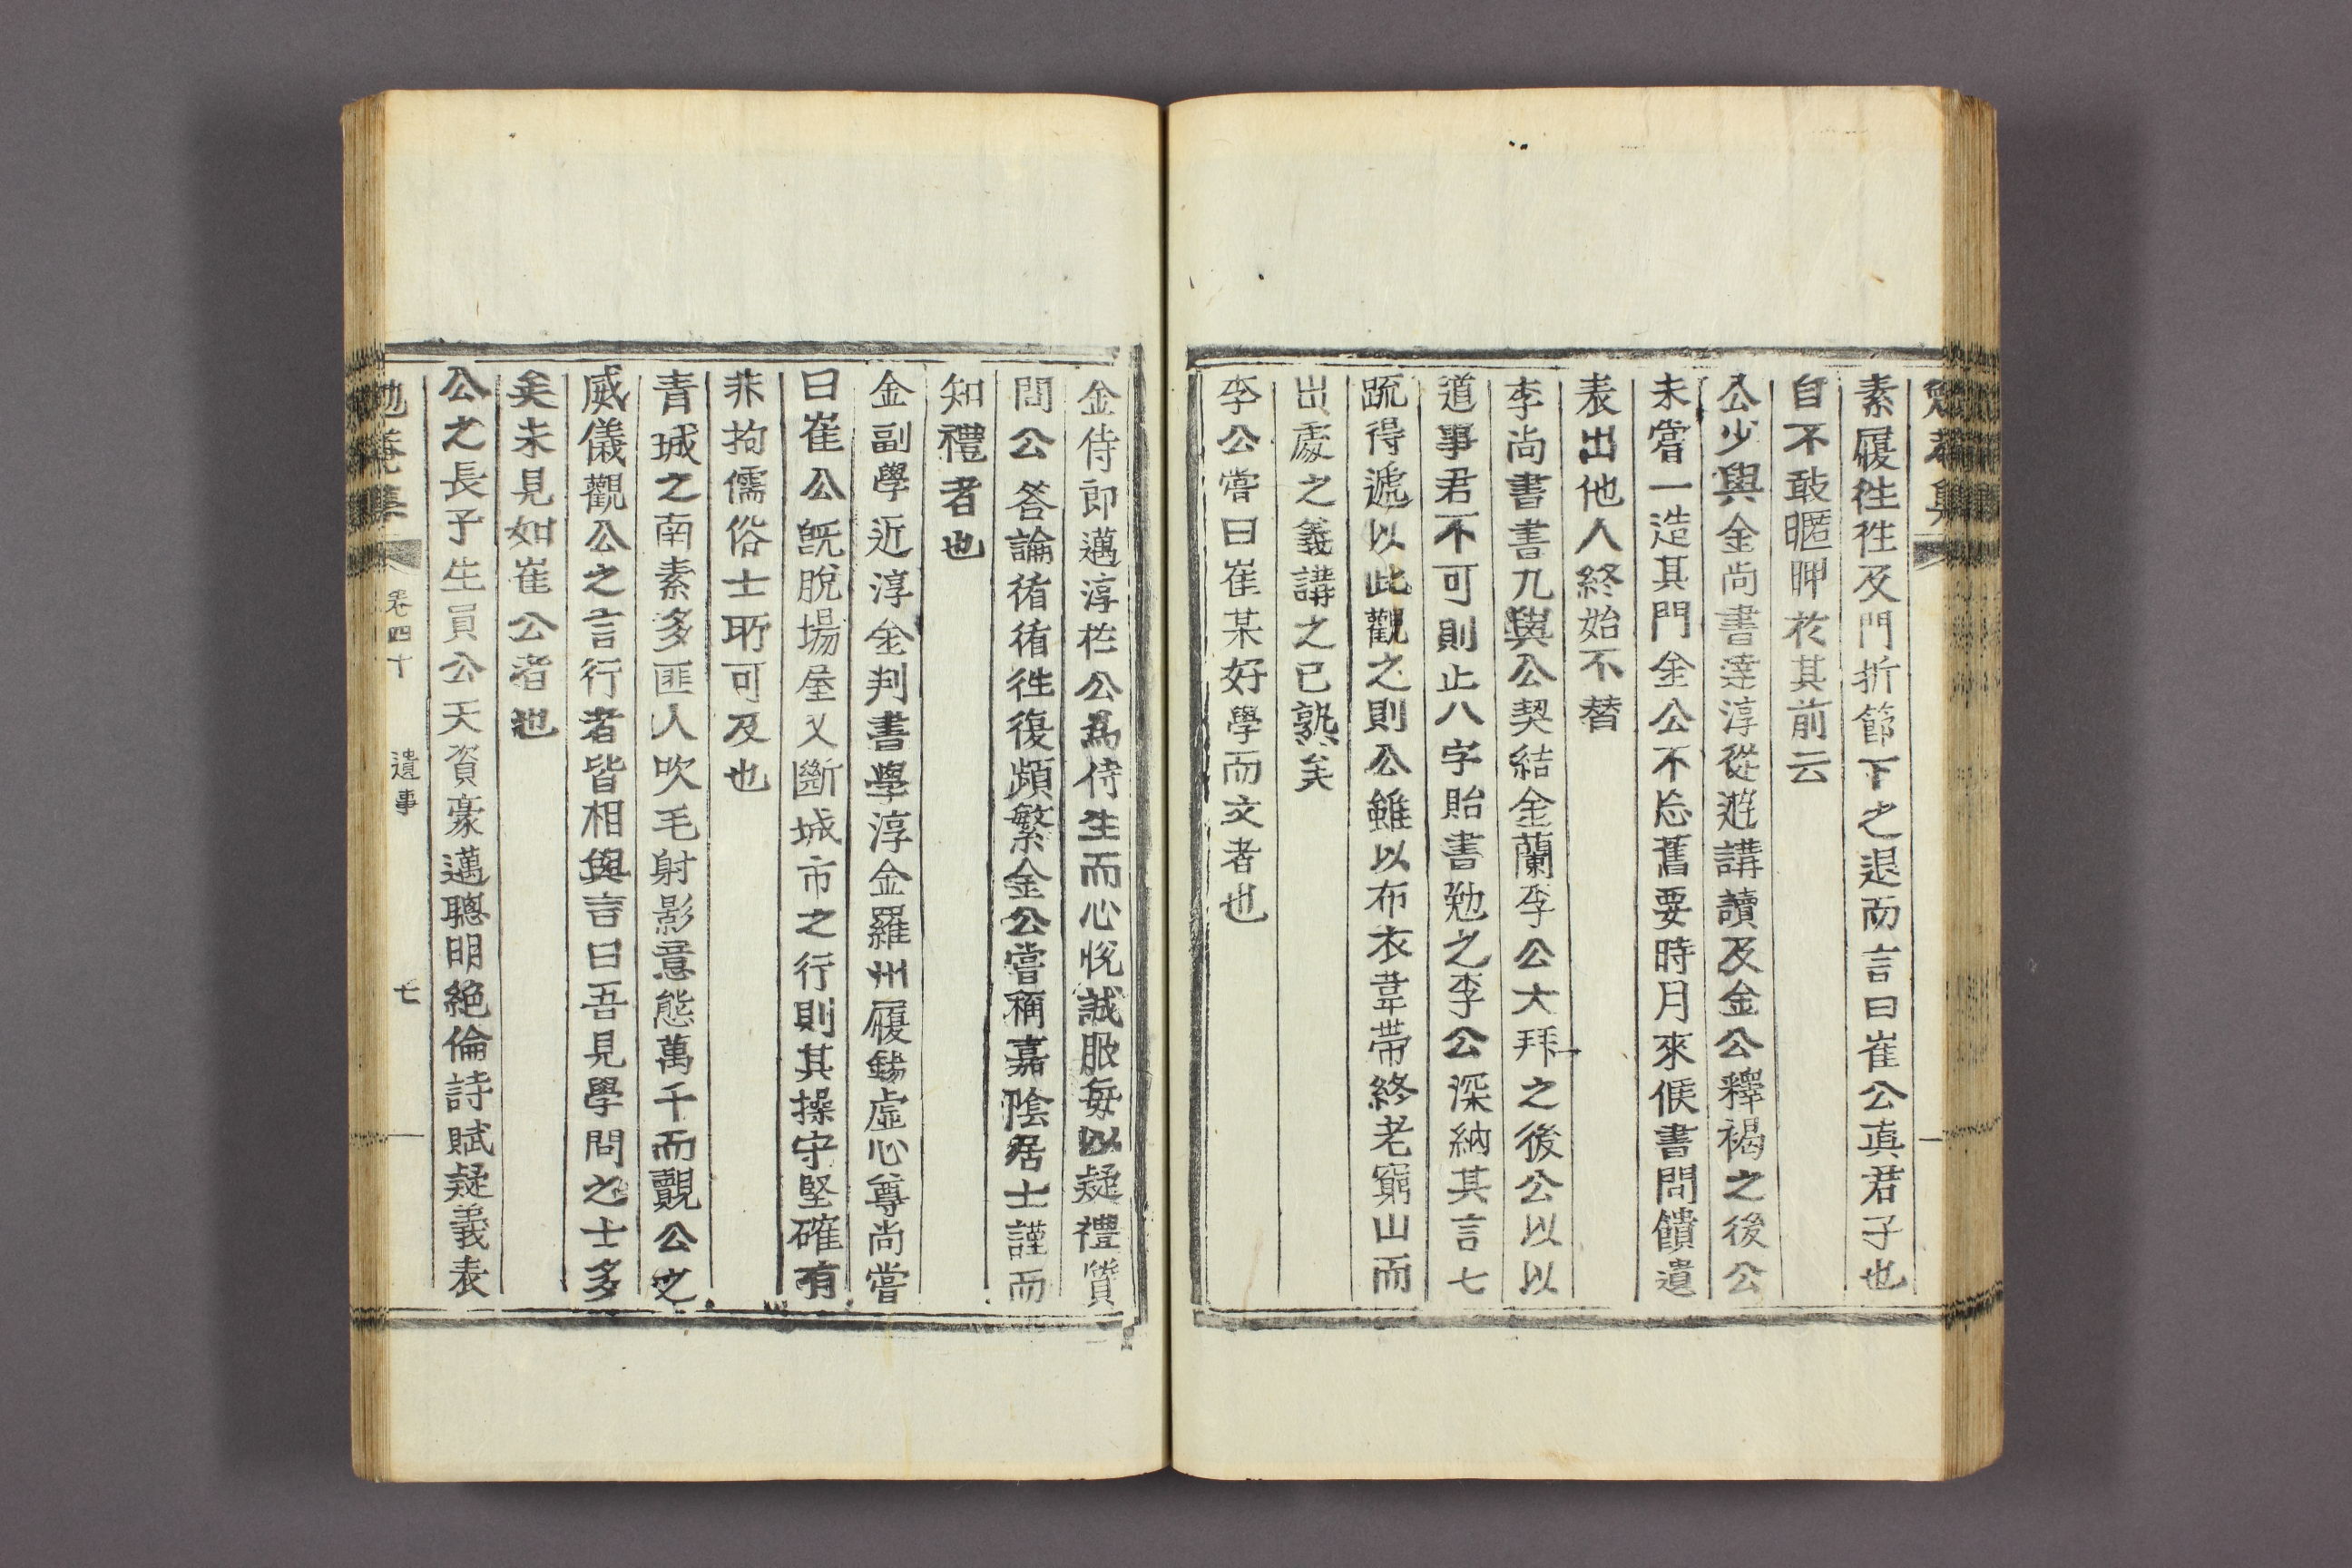 勉菴集
素履徃徃及門折節下之退而言曰崔公眞君子也
自不敢暱狎於其前云
公少與金尚書達淳從遊講讀及金公釋褐之後公
未嘗一造其門金公不忘舊要時月來候書問饋遺
表出他人終始不替
李尚書書九與公契結金蘭李公大拜之後公以以
道事君不可則止八字貽書勉之李公深納其言七
疏得遞以此觀之則公雖以布衣韋帶終老窮山而
出處之義講之已熟矣
李公嘗曰崔某好學而文者也
金侍郎邁淳於公爲侍生而心悅誠服每以疑禮質
問公答論循循徃復頻繁金公嘗稱嘉陰居士謹而
知禮者也
金副學近淳金判書學淳金羅州履錫虛心尊尚嘗
曰崔公旣脫場屋又斷城市之行則其操守堅確有
非拘儒俗士所可及也
青城之南素多匪人吹毛射影意態萬千而覿公之
威儀觀公之言行者皆相與言曰吾見學問之士多
矣未見如崔公者也
公之長子生員公天資豪邁聰明絶倫詩賦疑義表
勉菴集 卷四十 遺事 七